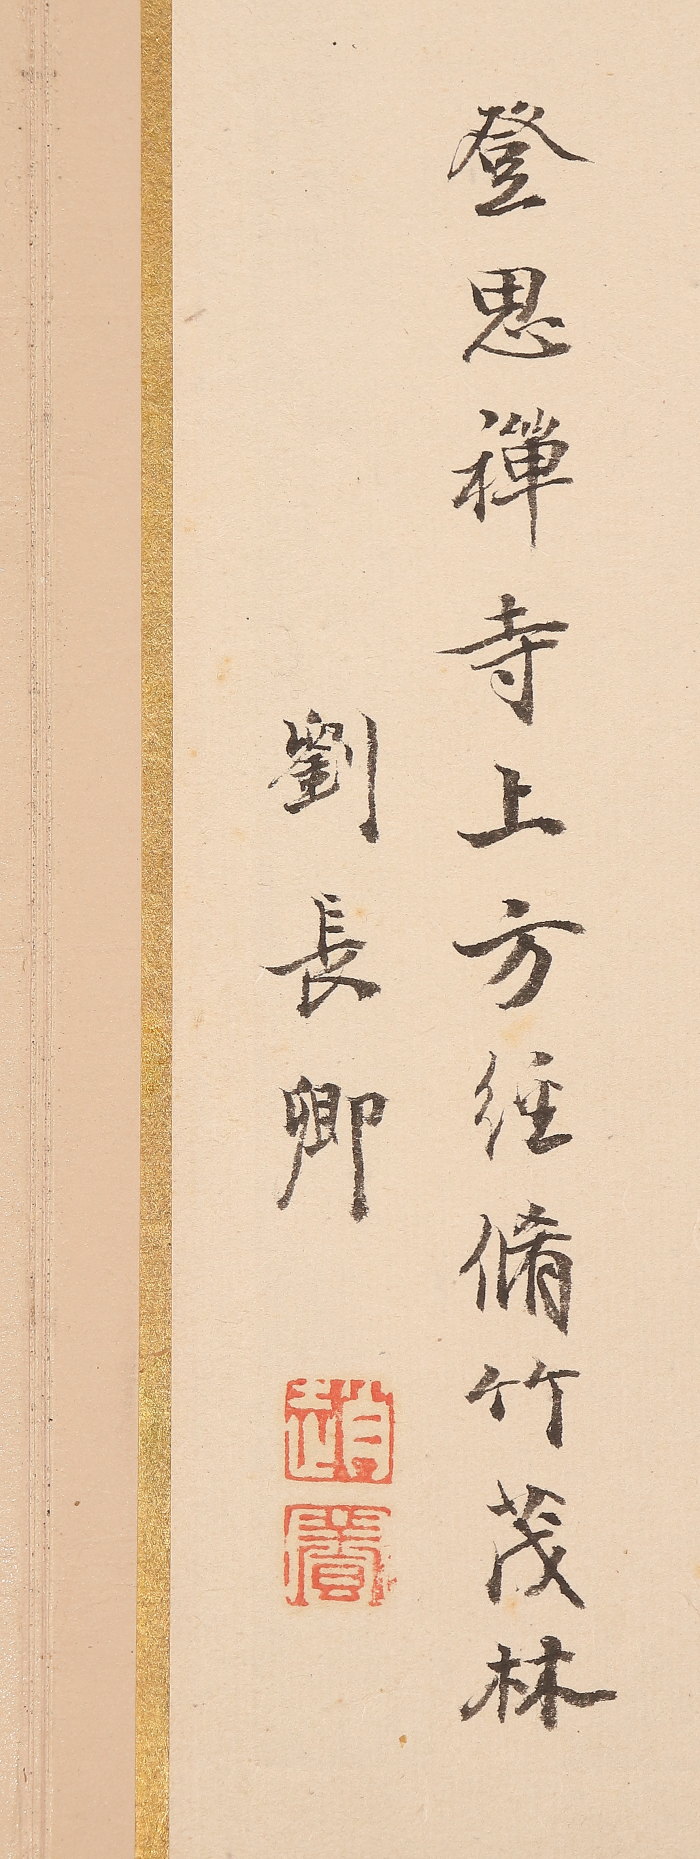 登思禅寺上方径脩竹茂林
劉長卿